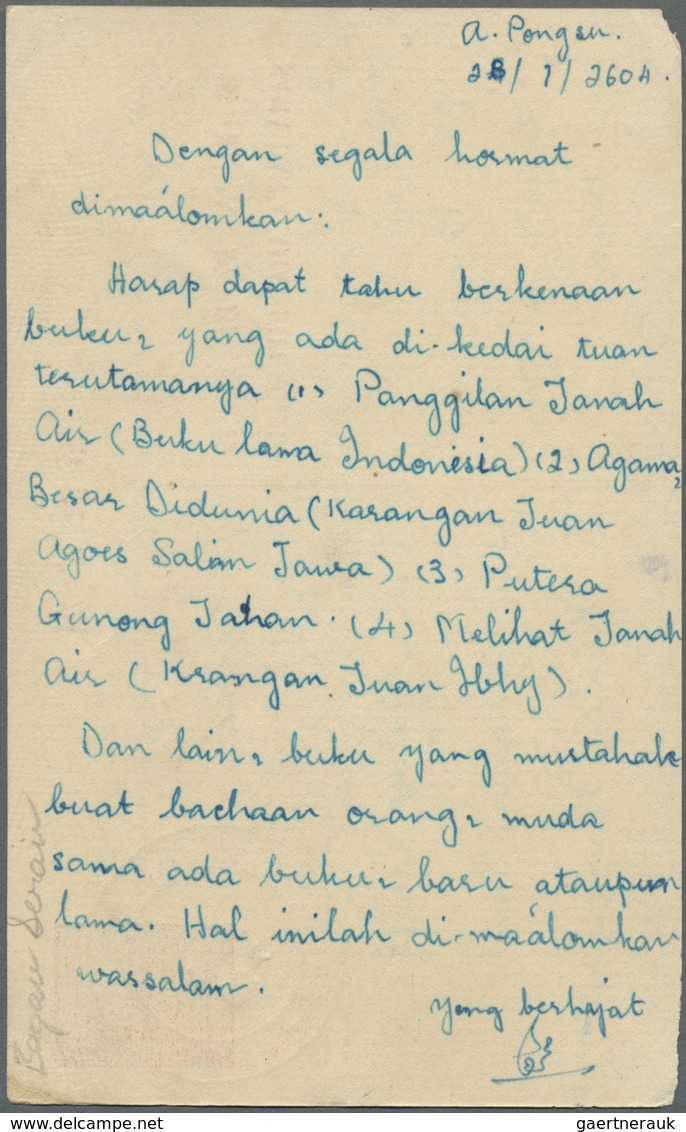 A. Pongsu.
28/7/2604.
Dengan segala hormat
dimaálomkan:
Harap dapat tahu berkenaan
buku2 yang ada di-kedai tuan
terutamanya (1) Panggilan Tanah
Air (Buku lama Indonisia) (2) Agama2
Besar Didunia (Karangan Tuan
Agoes Salim Jawa) (3) Putera
Gunong Tahan. (4) Melihat Tanah
Air (Krangan Tuan Ibhy).
Dan lain2 buku yang mustahak
buat bachaan orang2 muda
sama ada buku2 baru ataupun
lama. Hal inilah di-maálomkan
wassalam.
yang berhajat
Bagan Serai
© gaertnerauk / www.delcampe.net